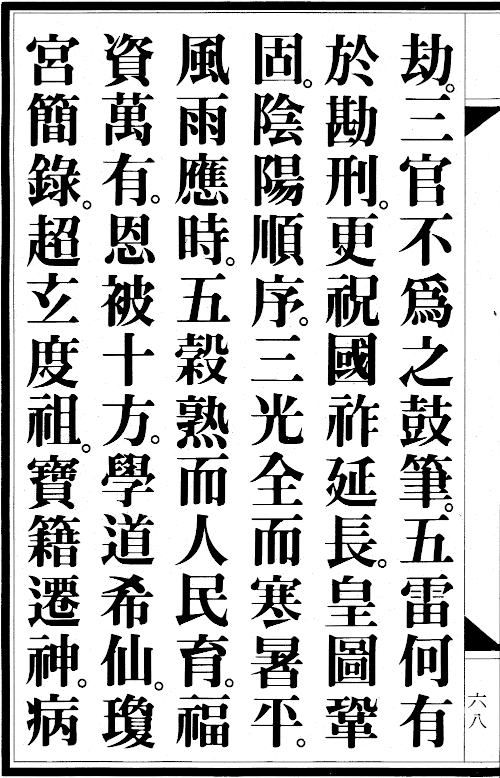 劫。三官不爲之鼓筆。五雷何有
於勘刑。更祝國祚延長。皇圖鞏
固。陰陽順序。三光全而寒暑平。
風雨應時。五穀熟而人民育。福
資萬有。恩被十方。學道希仙。瓊
宮簡錄。超玄度祖。寶籍遷神。病
六八